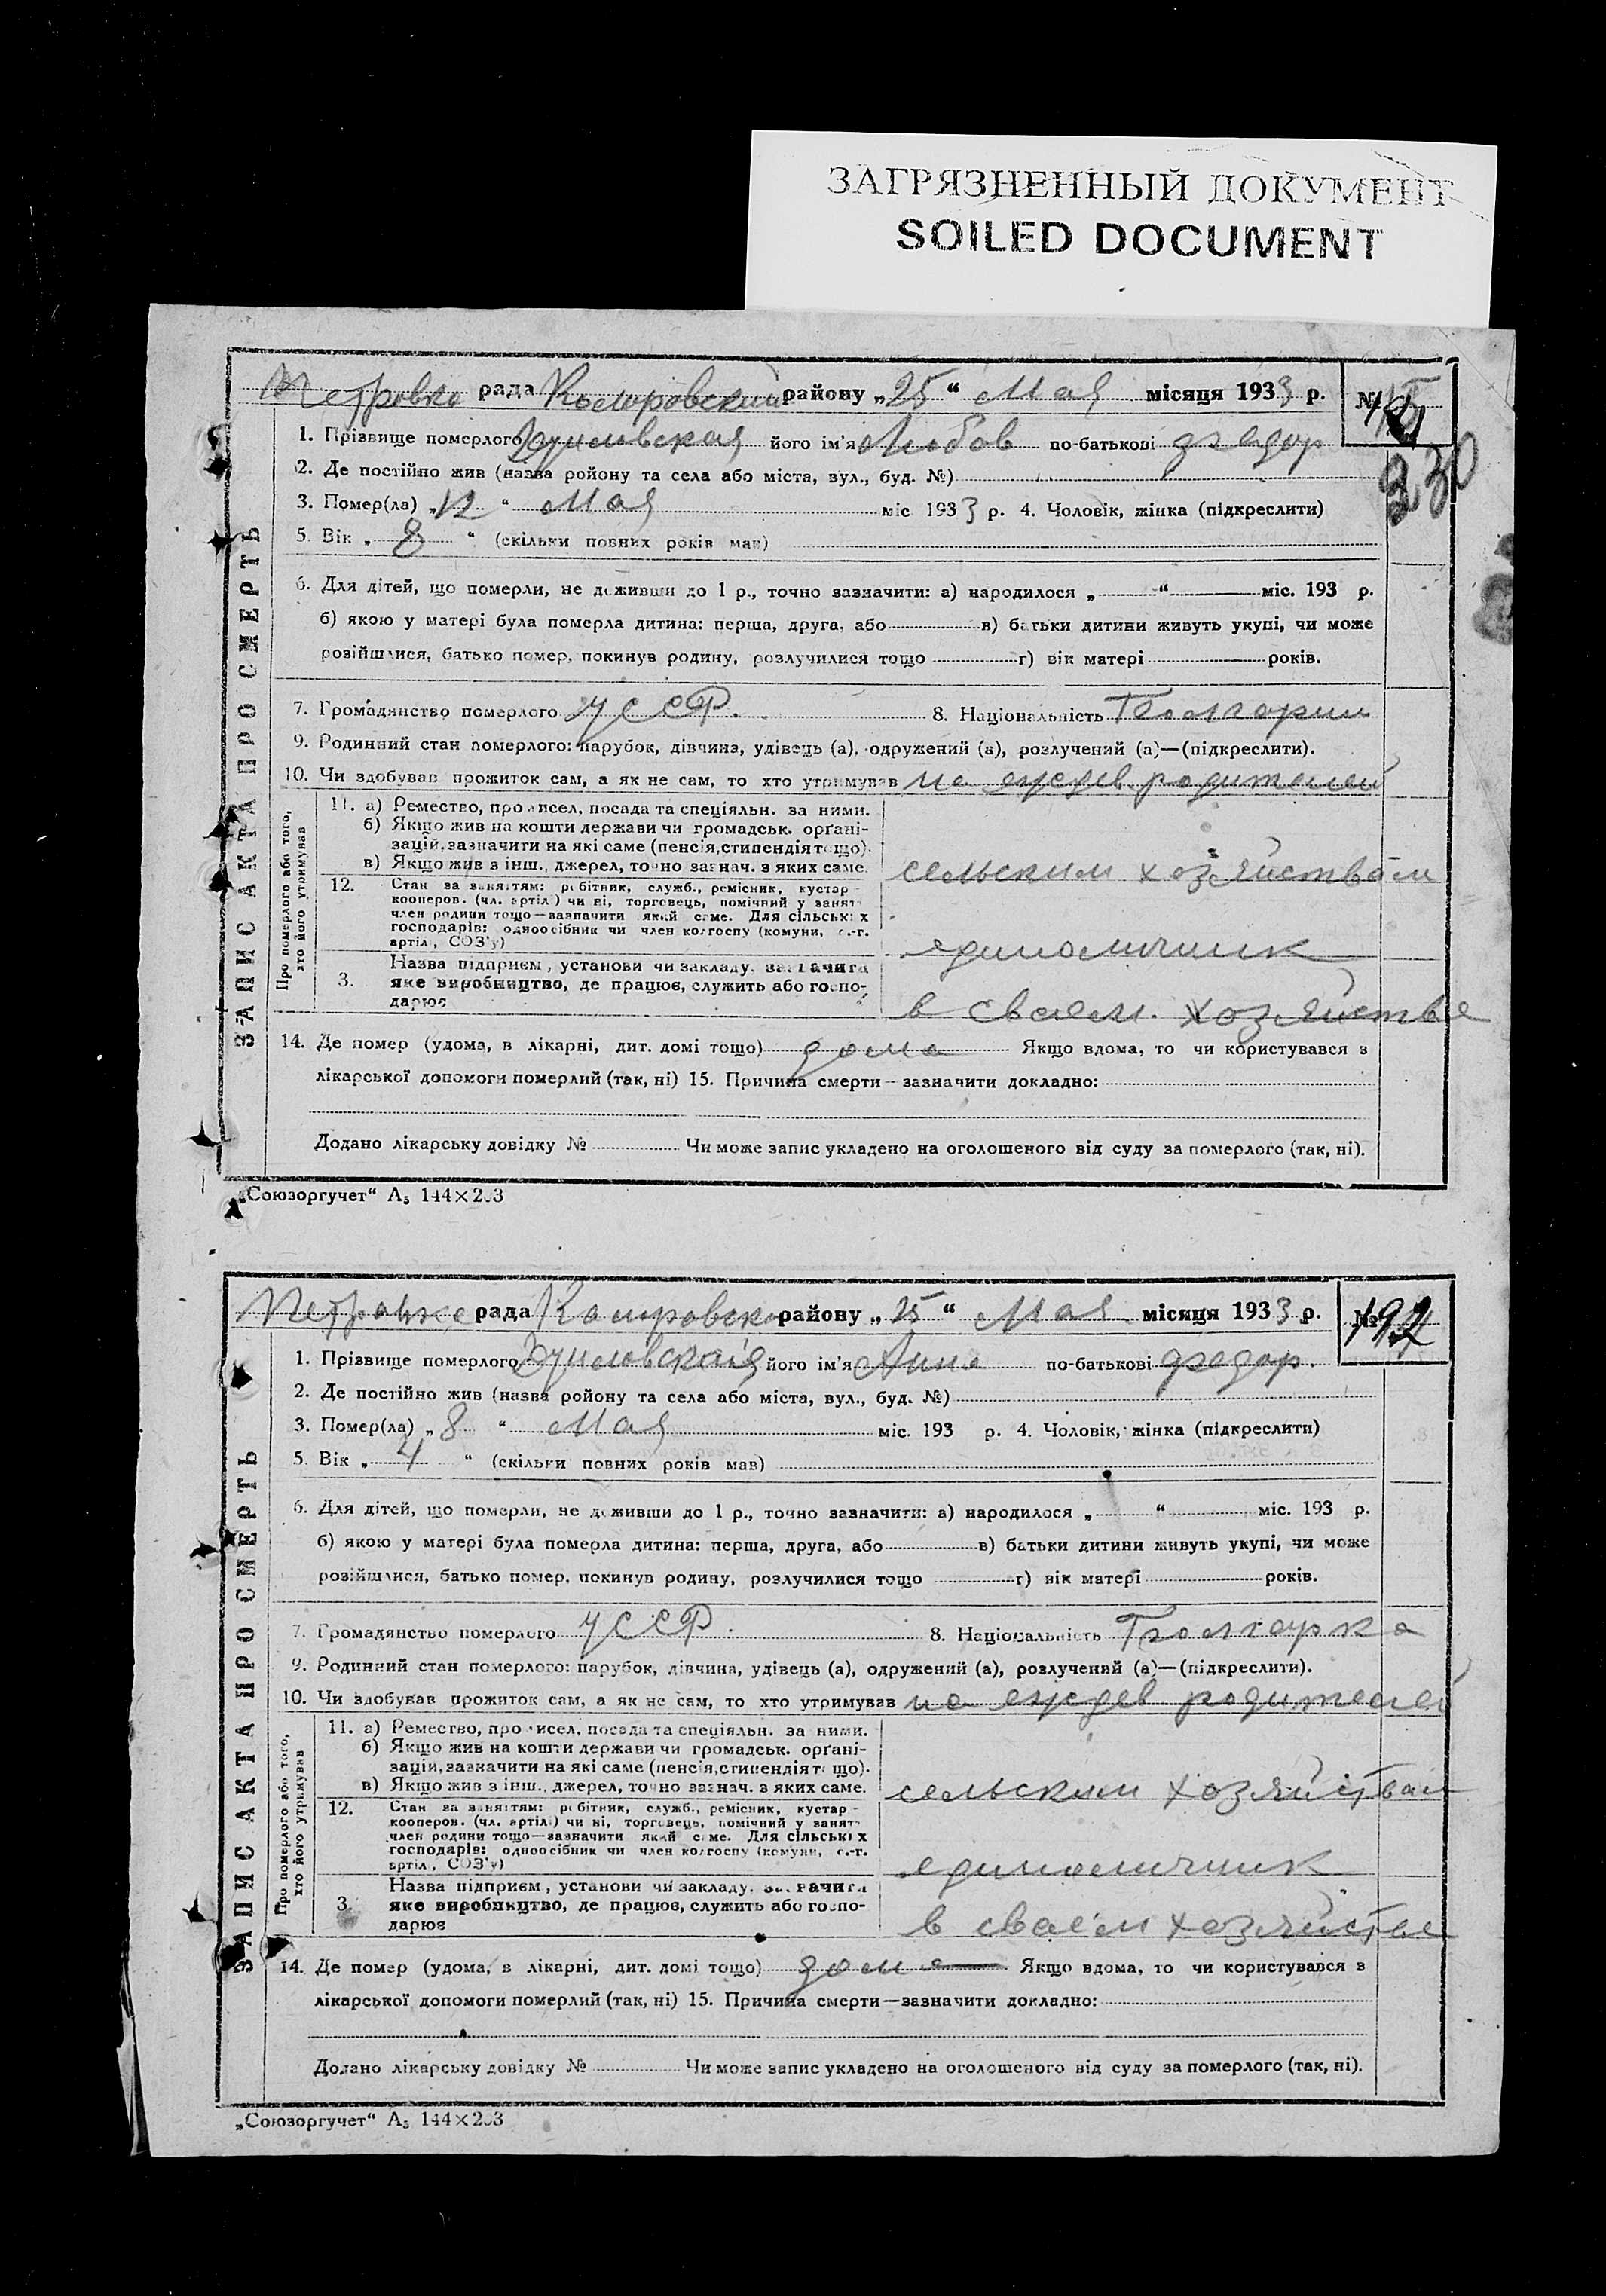 ЗАГРЯЗНЕННЫЙ ДОКУМЕНТ
SOILED DOCUMENT
рада районy „25“ Мая місяця 1933 р. №
330
1. Прізвище померлого його ім'я Любов по-батькові федор
2. Де постійно жив (назва ройону та села або міста, вул., буд. №)
3. Помер(ла) „12“ Мая міс 1933 р. 4. Чоловік, жінка (підкреслити)
5. Вік „8“ (скільки повних років мав)
6. Для дітей, що померли, не доживши до 1 р., точно зазначити: а) народилося „ “ міс. 193 р.
б) якою у матері була померла дитина: перша, друга, або в) батьки дитини живуть укупі, чи може
розійшлися, батько помер, покинув родину, розлучилися тощо г) вік матері років.
7. Громадянство померлого УССР. 8. Національність
9. Родинний стан померлого: парубок, дівчина, удівець (а), одружений (а), розлучений (а)—(підкреслити).
10. Чи здобував прожиток сам, а як не сам, то хто утримував на иждев. родителей
ЗАПИС АКТА ПРО СМЕРТЬ
Про померлого або того,
хто його утримував
11. а) Ремество, промисел, посада та спеціяльн. за ними.
б) Якщо жив на кошти держави чи громадськ. орґані-
зацій, зазначити на які саме (пенсія, стипендія тощо).
в) Якщо жив з інш., джерел, точно зазнач. з яких саме.
сельским хозяйствам
12. Стан за заняттям: робітник, служб., ремісник, кустар
кооперов. (чл. артілі) чи ні, торговець, помічний у занят
член родини тощо—зазначити який саме. Для сільських
господарів: одноосібник чи член колгоспу (комуни, с.-г.
артіл, СОЗ'у)
единоличник
3. Назва підприєм, установи чи закладу, зазначити
яке виробництво, де працює, служить або госпо-
дарює
в сваем хозяйстве
14. Де помер (удома, в лікарні, дит. домі тощо) дома Якщо вдома, то чи користувався з
лікарської допомоги померлий (так, ні) 15. Причина смерти—зазначити докладно:
Додано лікарську довідку № Чи може запис укладено на оголошеного від суду за померлого (так, ні).
„Союзоргучет“ А₅ 144×203
рада району „25“ Мая місяця 1933 р. №192
1. Прізвище померлого його ім'я Анна по-батькові федор.
2. Де постійно жив (назва ройону та села або міста, вул., буд. №)
3. Помер(ла) „8“ Мая міс. 193 р. 4. Чоловік, жінка (підкреслити)
5. Вік „4“ (скільки повних років мав)
6. Для дітей, що померли, не доживши до 1 р., точно зазначити: а) народилося „ “ міс. 193 р.
б) якою у матері була померла дитина: перша, друга, або в) батьки дитини живуть укупі, чи може
розійшлися, батько помер, покинув родину, розлучилися тощо г) вік матері років.
7. Громадянство померлого УССР. 8. Національність Болгарка
9. Родинний стан померлого: парубок, дівчина, удівець (а), одружений (а), розлучений (а)—(підкреслити).
10. Чи здобував прожиток сам, а як не сам, то хто утримував на иждев родителей
ЗАПИС АКТА ПРО СМЕРТЬ
Про померлого або того,
хто його утримував
11. а) Ремество, промисел, посада та спеціяльн. за ними.
б) Якщо жив на кошти держави чи громадськ. орґані-
зацій, зазначити на які саме (пенсія, стипендія тощо).
в) Якщо жив з інш., джерел, точно зазнач. з яких саме.
сельским хозяйствам
12. Стан за заняттям: робітник, служб., ремісник, кустар
кооперов. (чл. артілі) чи ні, торговець, помічний у занят
член родини тощо—зазначити який саме. Для сільських
господарів: одноосібник чи член колгоспу (комуни, с.-г.
артіл, СОЗ'у)
единоличник
3. Назва підприєм, установи чи закладу, зазначити
яке виробництво, де працює, служить або госпо-
дарює
в сваем хозяйстве
14. Де помер (удома, в лікарні, дит. домі тощо) дома Якщо вдома, то чи користувався з
лікарської допомоги померлий (так, ні) 15. Причина смерти—зазначити докладно:
Додано лікарську довідку № Чи може запис укладено на оголошеного від суду за померлого (так, ні).
„Союзоргучет“ А₅ 144×203